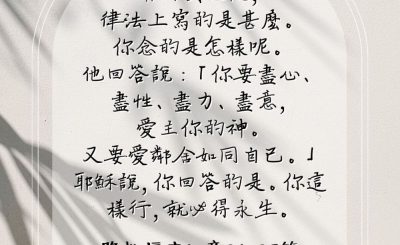 律法上寫的是甚麼。
你念的是怎樣呢。
他回答說：「你要盡心、
盡性、盡力、盡意，
愛主你的神。
又要愛鄰舍如同自己。」
耶穌說，你回答的是。你這
樣行，就必得永生。